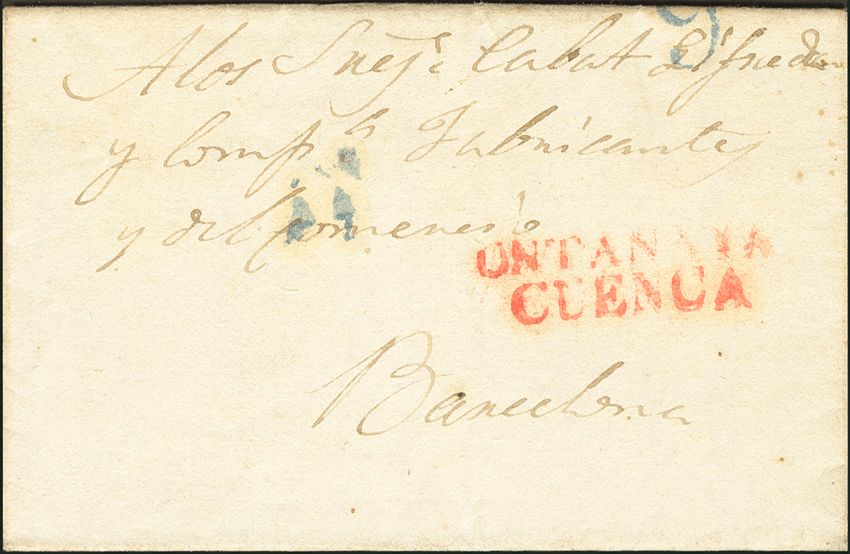 9
A los Sres
y Compª Fabricantes
y del Comercio
11
ONTANAYA
CUENCA
Barcelona